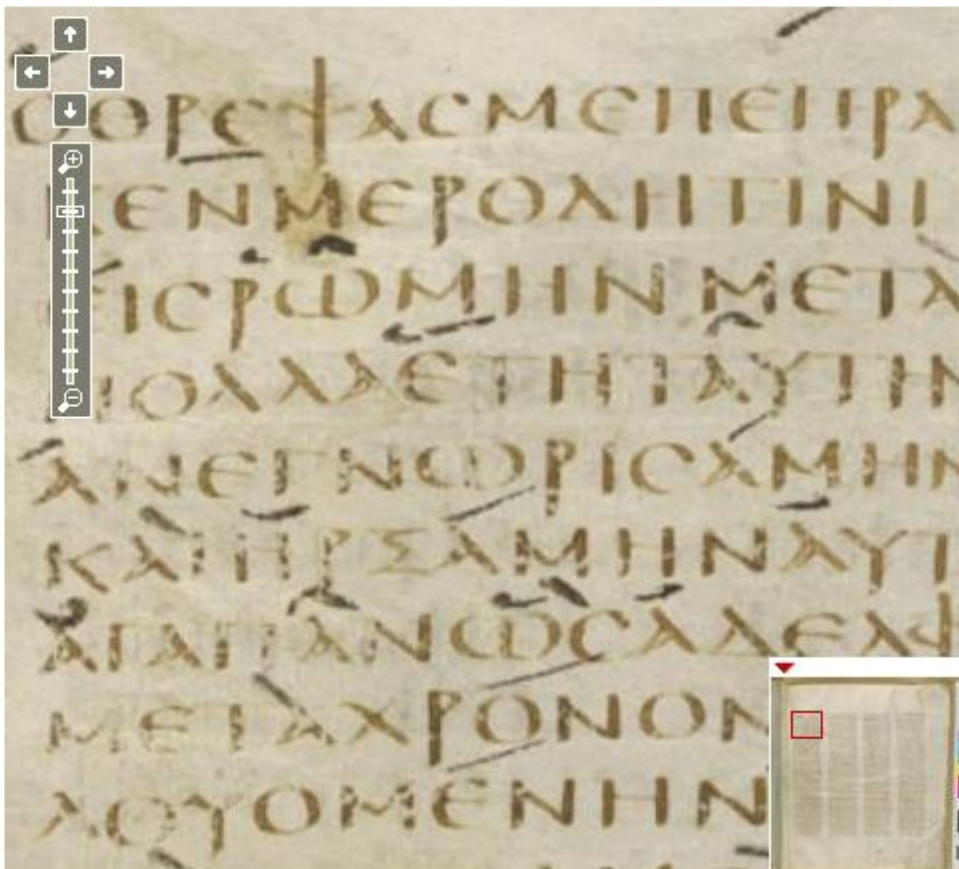 ΟΘΡΕΨΑϹΜΕΠΕΠΡΑ
ΚΕΝΜΕΡΟΔΗΤΙΝΙ
ΕΙϹΡΩΜΗΝΜΕΤΑ
ΠΟΛΛΑΕΤΗΤΑΥΤΗΝ
ΑΝΕΓΝΩΡΙϹΑΜΗΝ
ΚΑΙΗΡΞΑΜΗΝΑΥΤ
ΑΓΑΠΑΝΩϹΑΔΕΛΦ
ΜΕΤΑΧΡΟΝΟΝ
ΛΟΥΟΜΕΝΗΝ